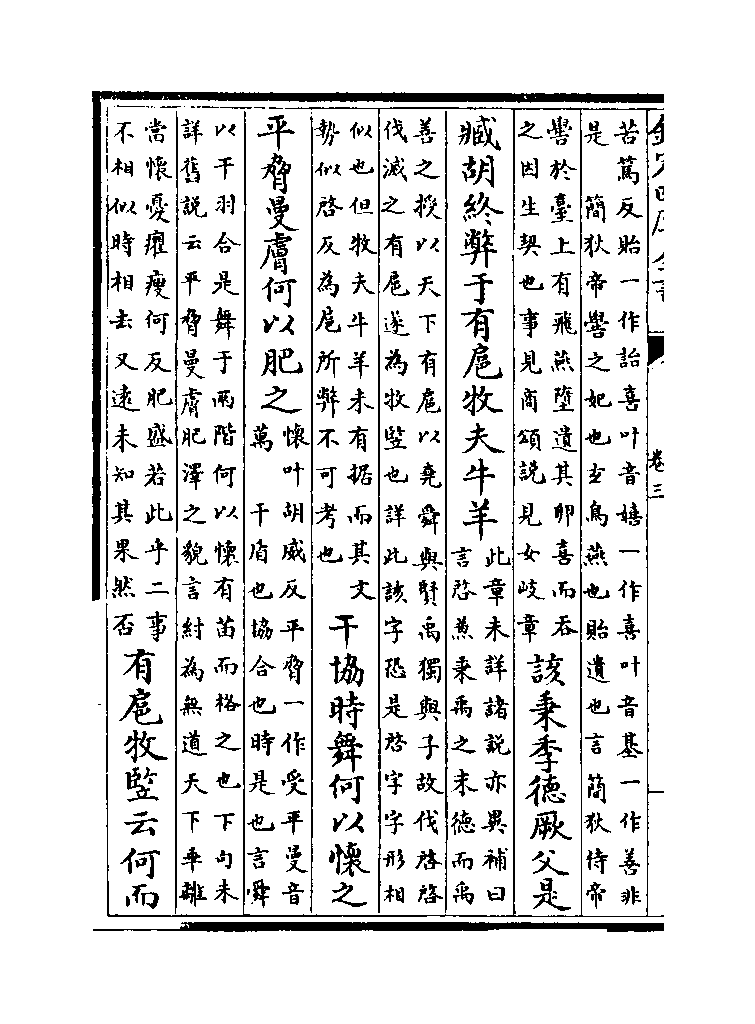 欽定四庫全書 卷三
苦篤反貽一作詒喜叶音嬉一作喜叶音基一作善非
是 簡狄帝嚳之妃也玄鳥燕也貽遺也言簡狄侍帝
嚳於臺上有飛燕墮遺其卵喜而吞
之因生契也事見商頌說見女岐章
該秉季德厥父是
臧胡終弊于有扈牧夫牛羊
此章未詳諸說亦異補曰
言啓兼秉禹之末德而禹
善之授以天下有扈以堯舜與賢禹獨與子故伐啓啓
伐滅之有扈遂為牧竪也詳此該字恐是啓字字形相
似也但牧夫牛羊未有據而其文
勢似啓反為扈所弊不可考也
干協時舞何以懷之
平脅曼膚何以肥之
懷叶胡威反平脅一作受平曼音
萬 干盾也協合也時是也言舜
以干羽合是舞于兩階何以懷有苗而格之也下句未
詳舊說云平脅曼膚肥澤之貌言紂為無道天下乖離
當懷憂癯瘦何反肥盛若此乎二事
不相似時相去又遠未知其果然否
有扈牧竪云何而